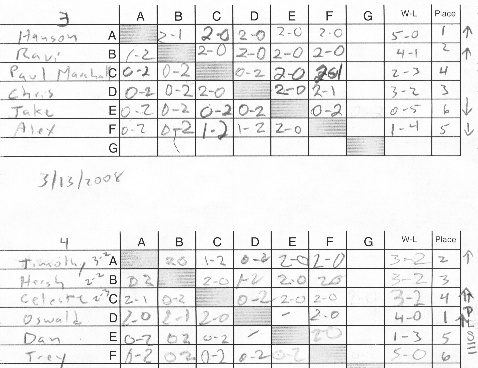 3 A B C D E F G W-L Place
Hanson A 2-1 2-0 2-0 2-0 2-0 5-0 1 ↑
Ravi B 1-2 2-0 2-0 2-0 2-0 4-1 2 ↑
Paul C 0-2 0-2 0-2 2-0 2-3 4
Chris D 0-2 0-2 2-0 2-0 2-1 3-2 3
Jake E 0-2 0-2 0-2 0-2 0-2 0-5 6 ↓
Alex F 0-2 0-2 1-2 1-2 2-0 1-4 5 ↓
G
3/13/2008
4 A B C D E F G W-L Place
Timothy 3-2 A 20 1-2 0-2 2-0 2-0 3-2 2 ↑
Hersh B 02 2-0 1-2 2-0 20 3-2 3
Celeste C 2-1 0-2 0-2 2-0 2-0 3-2 4
Oswald D 2-0 2-1 2-0 - 2-0 4-0 1
Dan E 0-2 02 0-2 - 20 1-3 5
Trey F 0-2 02 0-2 0-2 0-2 5-0 6